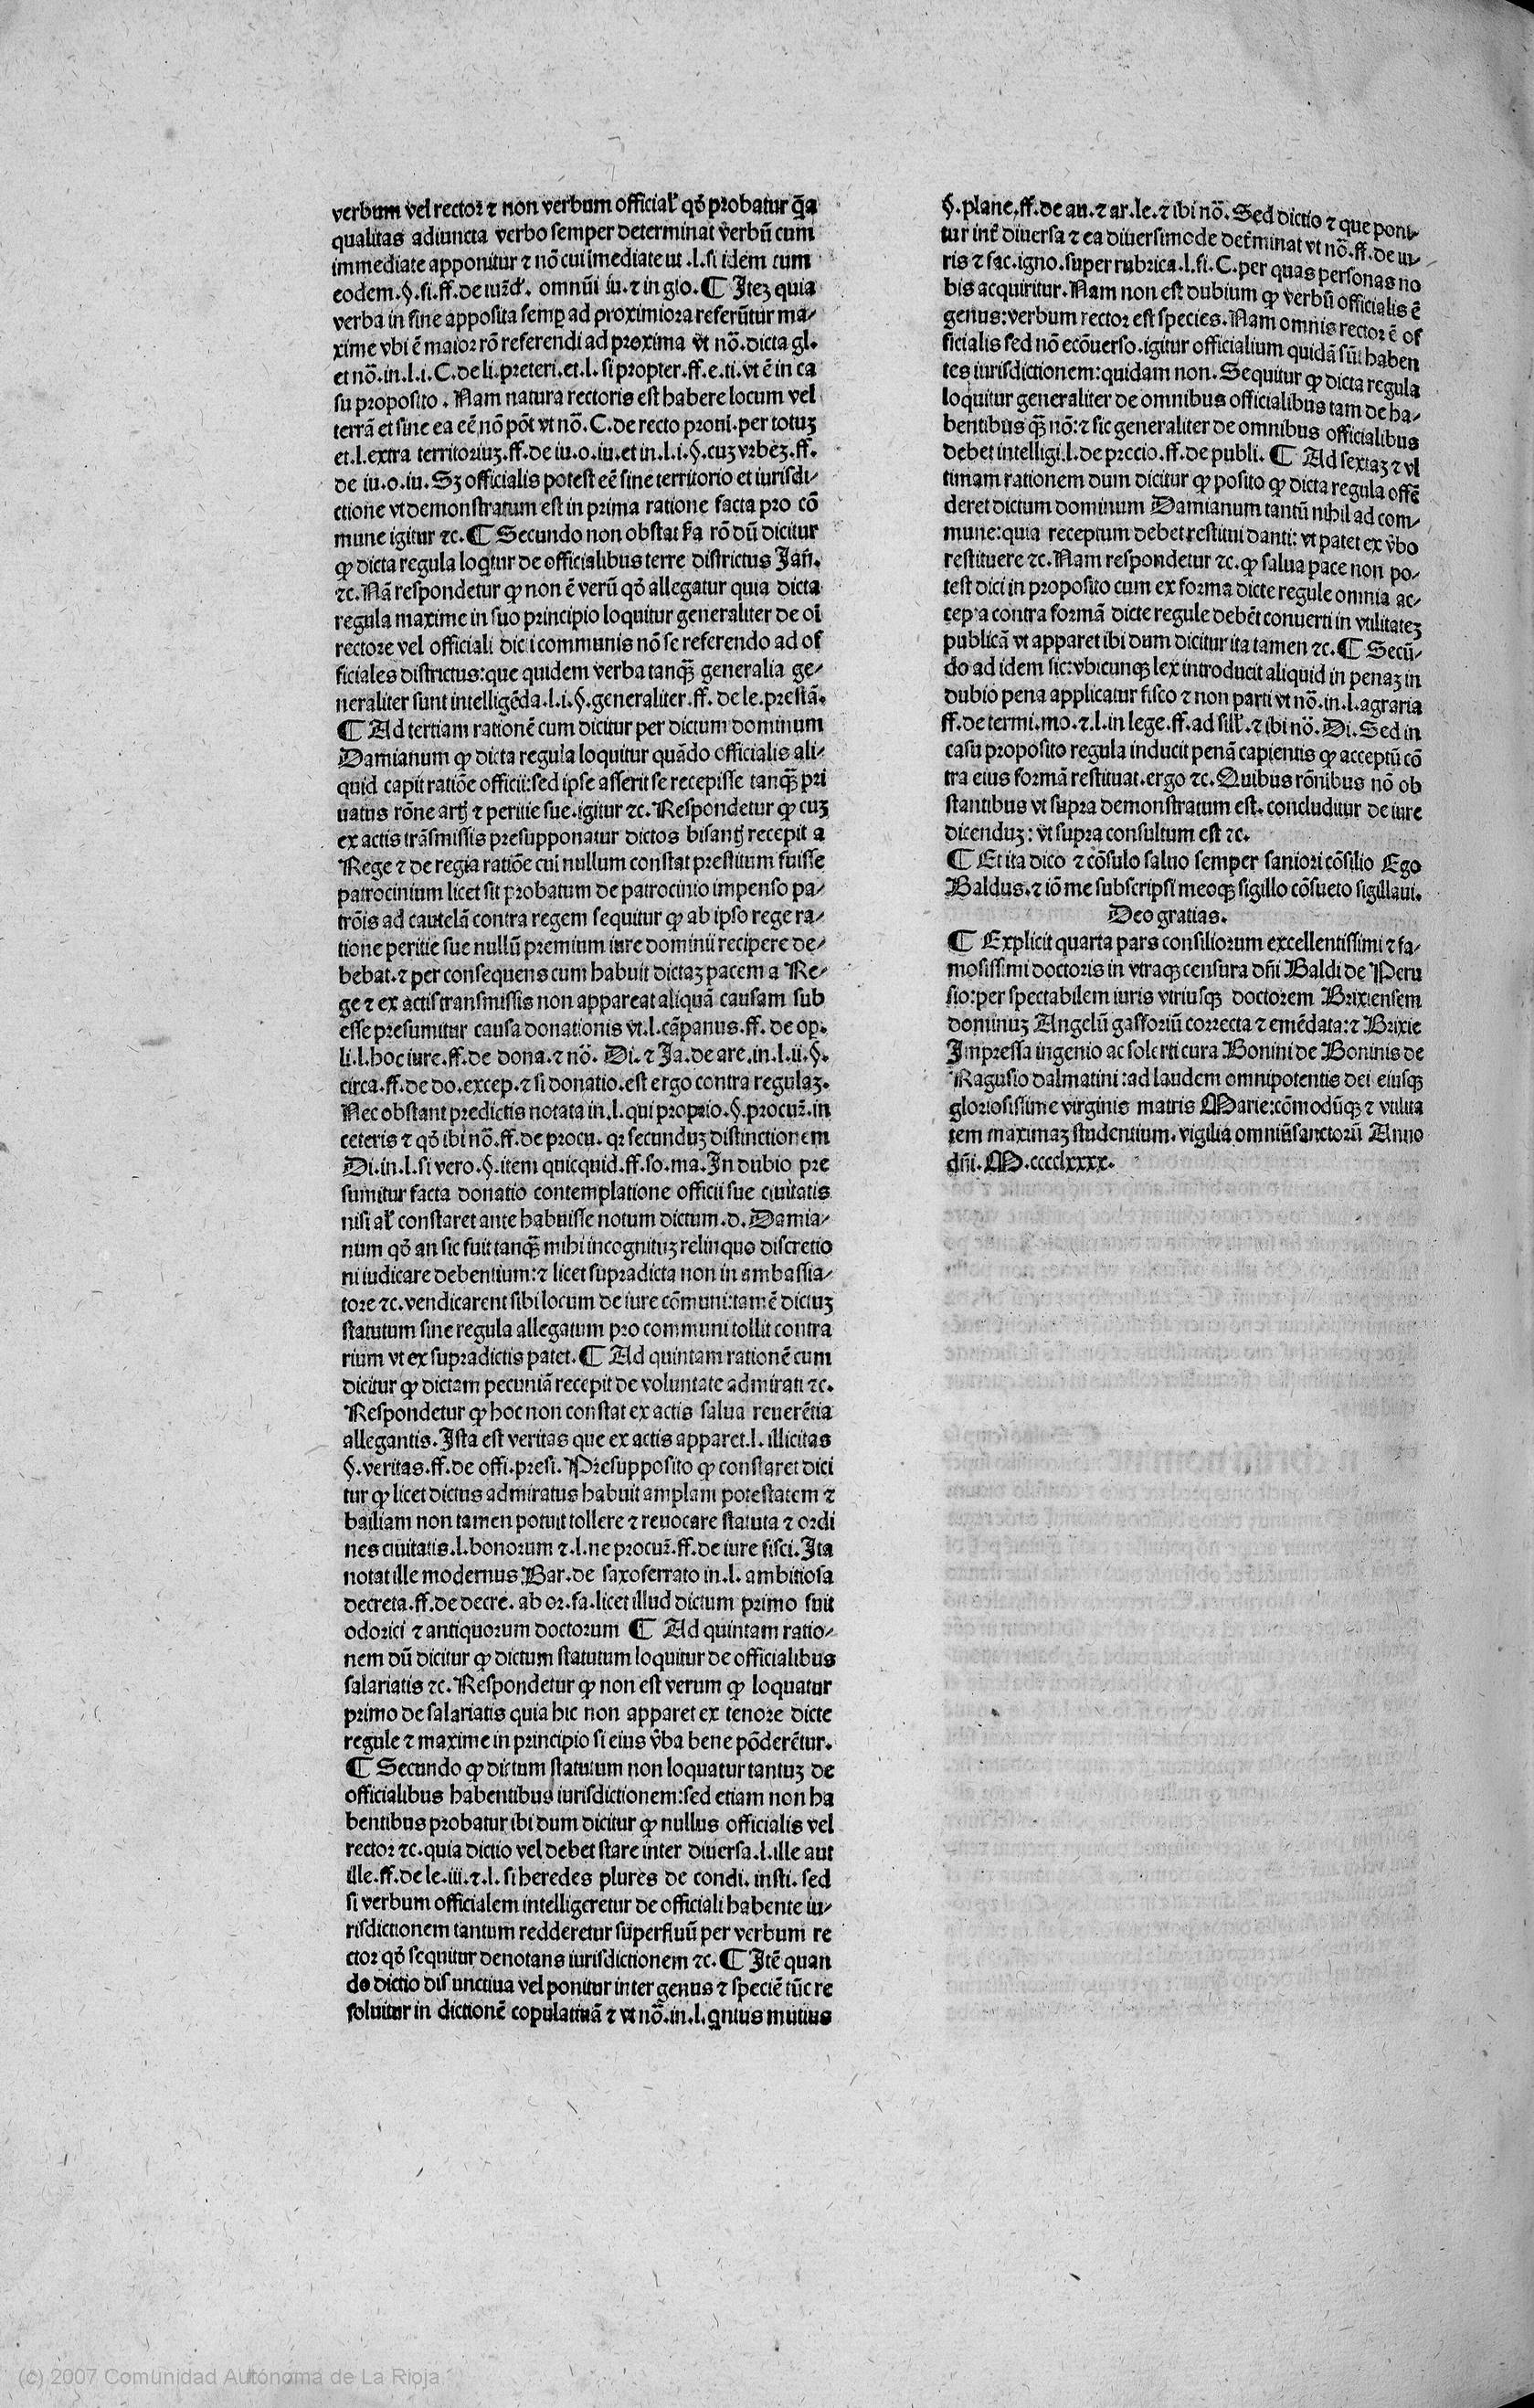 verbum vel rector ⁊ non verbum official̓ qð probatur q̃a
qualitas adiuncta verbo semper determinat verbũ cum
immediate apponitur ⁊ nõ cui imediate ut .l. si idem cum
eodem.§.fi.ff.de iur̃d̓. omnũi iu.⁊ in glo.¶ Itez quia
verba in fine apposita semꝑ ad proximiora referũtur ma⸗
xime vbi ẽ maior rõ referendi ad proxima vt nõ.dicta gl.
et nõ.in.l.i.C.de li.preteri.et.l. si propter.ff.e.ti.vt ẽ in ca
su proposito . Nam natura rectoris est habere locum vel
terrã et sine ea eẽ nõ põt vt nõ. C.de recto proui.per totuz
et.l.extra territoriuz.ff.de iu.o.iu.et in.l.i.§.cuz vrbez.ff.
de iu.o.iu. Sz officialis potest eẽ sine territorio et iurisdi⸗
ctione vt demonstratum est in prima ratione facta pro cõ
mune igitur ⁊c.¶ Secundo non obstat scḋa rõ dũ dicitur
ꝙ dicta regula loq̃tur de officialibus terre districtus Jañ.
⁊c. Nã respondetur ꝙ non ẽ verũ qð allegatur quia dicta
regula maxime in suo principio loquitur generaliter de oĩ
rectore vel officiali dicti communis nõ se referendo ad of
ficiales districtus:que quidem verba tanqꝫ̃ generalia ge⸗
neraliter sunt intelligẽda.l.i.§.generaliter.ff. de le.prestã.
¶ Ad tertiam rationẽ cum dicitur per dictum dominum
Damianum ꝙ dicta regula loquitur quãdo officialis ali⸗
quid capit ratiõe officii:sed ipse asserit se recepisse tanqꝫ̃ pri
uatus rõne artꝭ ⁊ peritie sue.igitur ⁊c. Respondetur ꝙ cuz
ex actis trãsmissis presupponatur dictos bisantꝭ recepit a
Rege ⁊ de regia ratiõe cui nullum constat prestitum fuisse
patrocinium licet sit probatum de patrocinio impenso pa⸗
trõis ad cautelã contra regem sequitur ꝙ ab ipso rege ra⸗
tione peritie sue nullũ premium iure dominii recipere de⸗
bebat.⁊ per consequens cum habuit dictaz pacem a Re⸗
ge ⁊ ex actis transmissis non appareat aliquã causam sub
esse presumitur causa donationis vt.l.cãpanus.ff. de op.
li.l.hoc iure.ff.de dona.⁊ nõ. Di.⁊ Ja.de are.in.l.ii.§.
circa.ff.de do.excep.⁊ si donatio.est ergo contra regulaz.
Nec obstant predictis notata in.l.qui proprio.§.procur̃.in
ceteris ⁊ qð ibi nõ.ff.de procu. qr secunduz distinctionem
Di.in.l.si vero.§.item quicquid.ff.so.ma.In dubio pre
sumitur facta donatio contemplatione officii sue ciuitatis
nisi al̓ constaret ante habuisse notum dictum.d. Damia⸗
num qð an sic fuit tanqꝫ̃ mihi incognituz relinquo discretio
ni iudicare debentium:⁊ licet supradicta non in ambassia⸗
tore ⁊c.vendicarent sibi locum de iure cõmuni:tamẽ dictuz
statutum sine regula allegatum pro communi tollit contra
rium vt ex supradictis patet.¶ Ad quintam rationẽ cum
dicitur ꝙ dictam pecuniã recepit de voluntate admirati ⁊c.
Respondetur ꝙ hoc non constat ex actis salua reuerẽtia
allegantis. Ista est veritas que ex actis apparet.l. illicitas
§.veritas.ff.de offi.presi. Presupposito ꝙ constaret dici
tur ꝙ licet dictus admiratus habuit amplam potestatem ⁊
bailiam non tamen potuit tollere ⁊ reuocare statuta ⁊ ordi
nes ciuitatis.l.bonorum ⁊.l.ne procur̃.ff.de iure fisci. Ita
notat ille modernus Bar.de saxoferrato in.l. ambitiosa
decreta.ff.de decre. ab or.fa.licet illud dictum primo fuit
odorici ⁊ antiquorum doctorum ¶ Ad quintam ratio⸗
nem dũ dicitur ꝙ dictum statutum loquitur de officialibus
salariatis ⁊c. Respondetur ꝙ non est verum ꝙ loquatur
primo de salariatis quia hic non apparet ex tenore dicte
regule ⁊ maxime in principio si eius v̓ba bene põderẽtur.
¶ Secundo ꝙ dictum statutum non loquatur tantuz de
officialibus habentibus iurisdictionem:sed etiam non ha
bentibus probatur ibi dum dicitur ꝙ nullus officialis vel
rector ⁊c.quia dictio vel debet stare inter diuersa.l.ille aut
ille.ff.de le.iii.⁊.l. si heredes plures de condi. insti. sed
si verbum officialem intelligeretur de officiali habente iu⸗
risdictionem tantum redderetur superfluũ per verbum re
ctor qð sequitur denotans iurisdictionem ⁊c.¶ Itẽ quan
do dictio dis unctiua vel ponitur inter genus ⁊ speciẽ tũc re
soluitur in dictionẽ copulatiuã ⁊ vt nõ.in.l. qntus mutius
§.plane.ff.de au.⁊ ar.le.⁊ ibi nõ. Sed dictio ⁊ que poni⸗
tur int̓ diuersa ⁊ ea diuersimode det̓minat vt nõ.ff.de iu⸗
ris ⁊ fac.igno.super rubrica.l.fi. C.per quas personas no
bis acquiritur. Nam non est dubium ꝙ verbũ officialis ẽ
genus:verbum rector est species. Nam omnis rector ẽ of
ficialis sed nõ ecõuerso.igitur officialium quidã sũt haben
tes iurisdictionem:quidam non. Sequitur ꝙ dicta regula
loquitur generaliter de omnibus officialibus tam de ha⸗
bentibus qꝫ̃ nõ:⁊ sic generaliter de omnibus officialibus
debet intelligi.l.de precio.ff.de publi.¶ Ad sextaz ⁊ vl
timam rationem dum dicitur ꝙ posito ꝙ dicta regula offẽ
deret dictum dominum Damianum tantũ nihil ad com⸗
mune:quia receptum debet restitui danti: vt patet ex v̓bo
restituere ⁊c. Nam respondetur ⁊c. ꝙ salua pace non po⸗
test dici in proposito cum ex forma dicte regule omnia ac⸗
cepta contra formã dicte regule debẽt conuerti in vtilitatez
publicã vt apparet ibi dum dicitur ita tamen ⁊c.¶ Secũ⸗
do ad idem sic:vbicunqꝫ lex introducit aliquid in penaz in
dubio pena applicatur fisco ⁊ non parti vt nõ.in.l.agraria
ff.de termi.mo.⁊ l.in lege.ff.ad sill̓.⁊ ibi nõ. Di. Sed in
casu proposito regula inducit penã capientis ꝙ acceptũ cõ
tra eius formã restituat.ergo ⁊c. Quibus rõnibus nõ ob
stantibus vt supra demonstratum est. concluditur de iure
dicenduz: vt supra consultum est ⁊c.
¶ Et ita dico ⁊ cõsulo saluo semper saniori cõsilio Ego
Baldus.⁊ iõ me subscripsi meoqꝫ sigillo cõsueto sigillaui.
Deo gratias.
¶ Explicit quarta pars consiliorum excellentissimi ⁊ fa⸗
mosissimi doctoris in vtraqꝫ censura dñi Baldi de Peru
sio:per spectabilem iuris vtriusqꝫ doctorem Brixiensem
dominuz Angelũ gassoriũ correcta ⁊ emẽdata:⁊ Brixie
Impressa ingenio ac solerti cura Bonini de Boninis de
Ragusio dalmatini:ad laudem omnipotentis dei eiusqꝫ
gloriosissime virginis matris Marie:cõmodũqꝫ ⁊ vtilita
tem maximaz studentium. vigilia omniũ sanctorũ Anno
dñi. M.cccclxxxx.
(c) 2007 Comunidad Autónoma de La Rioja